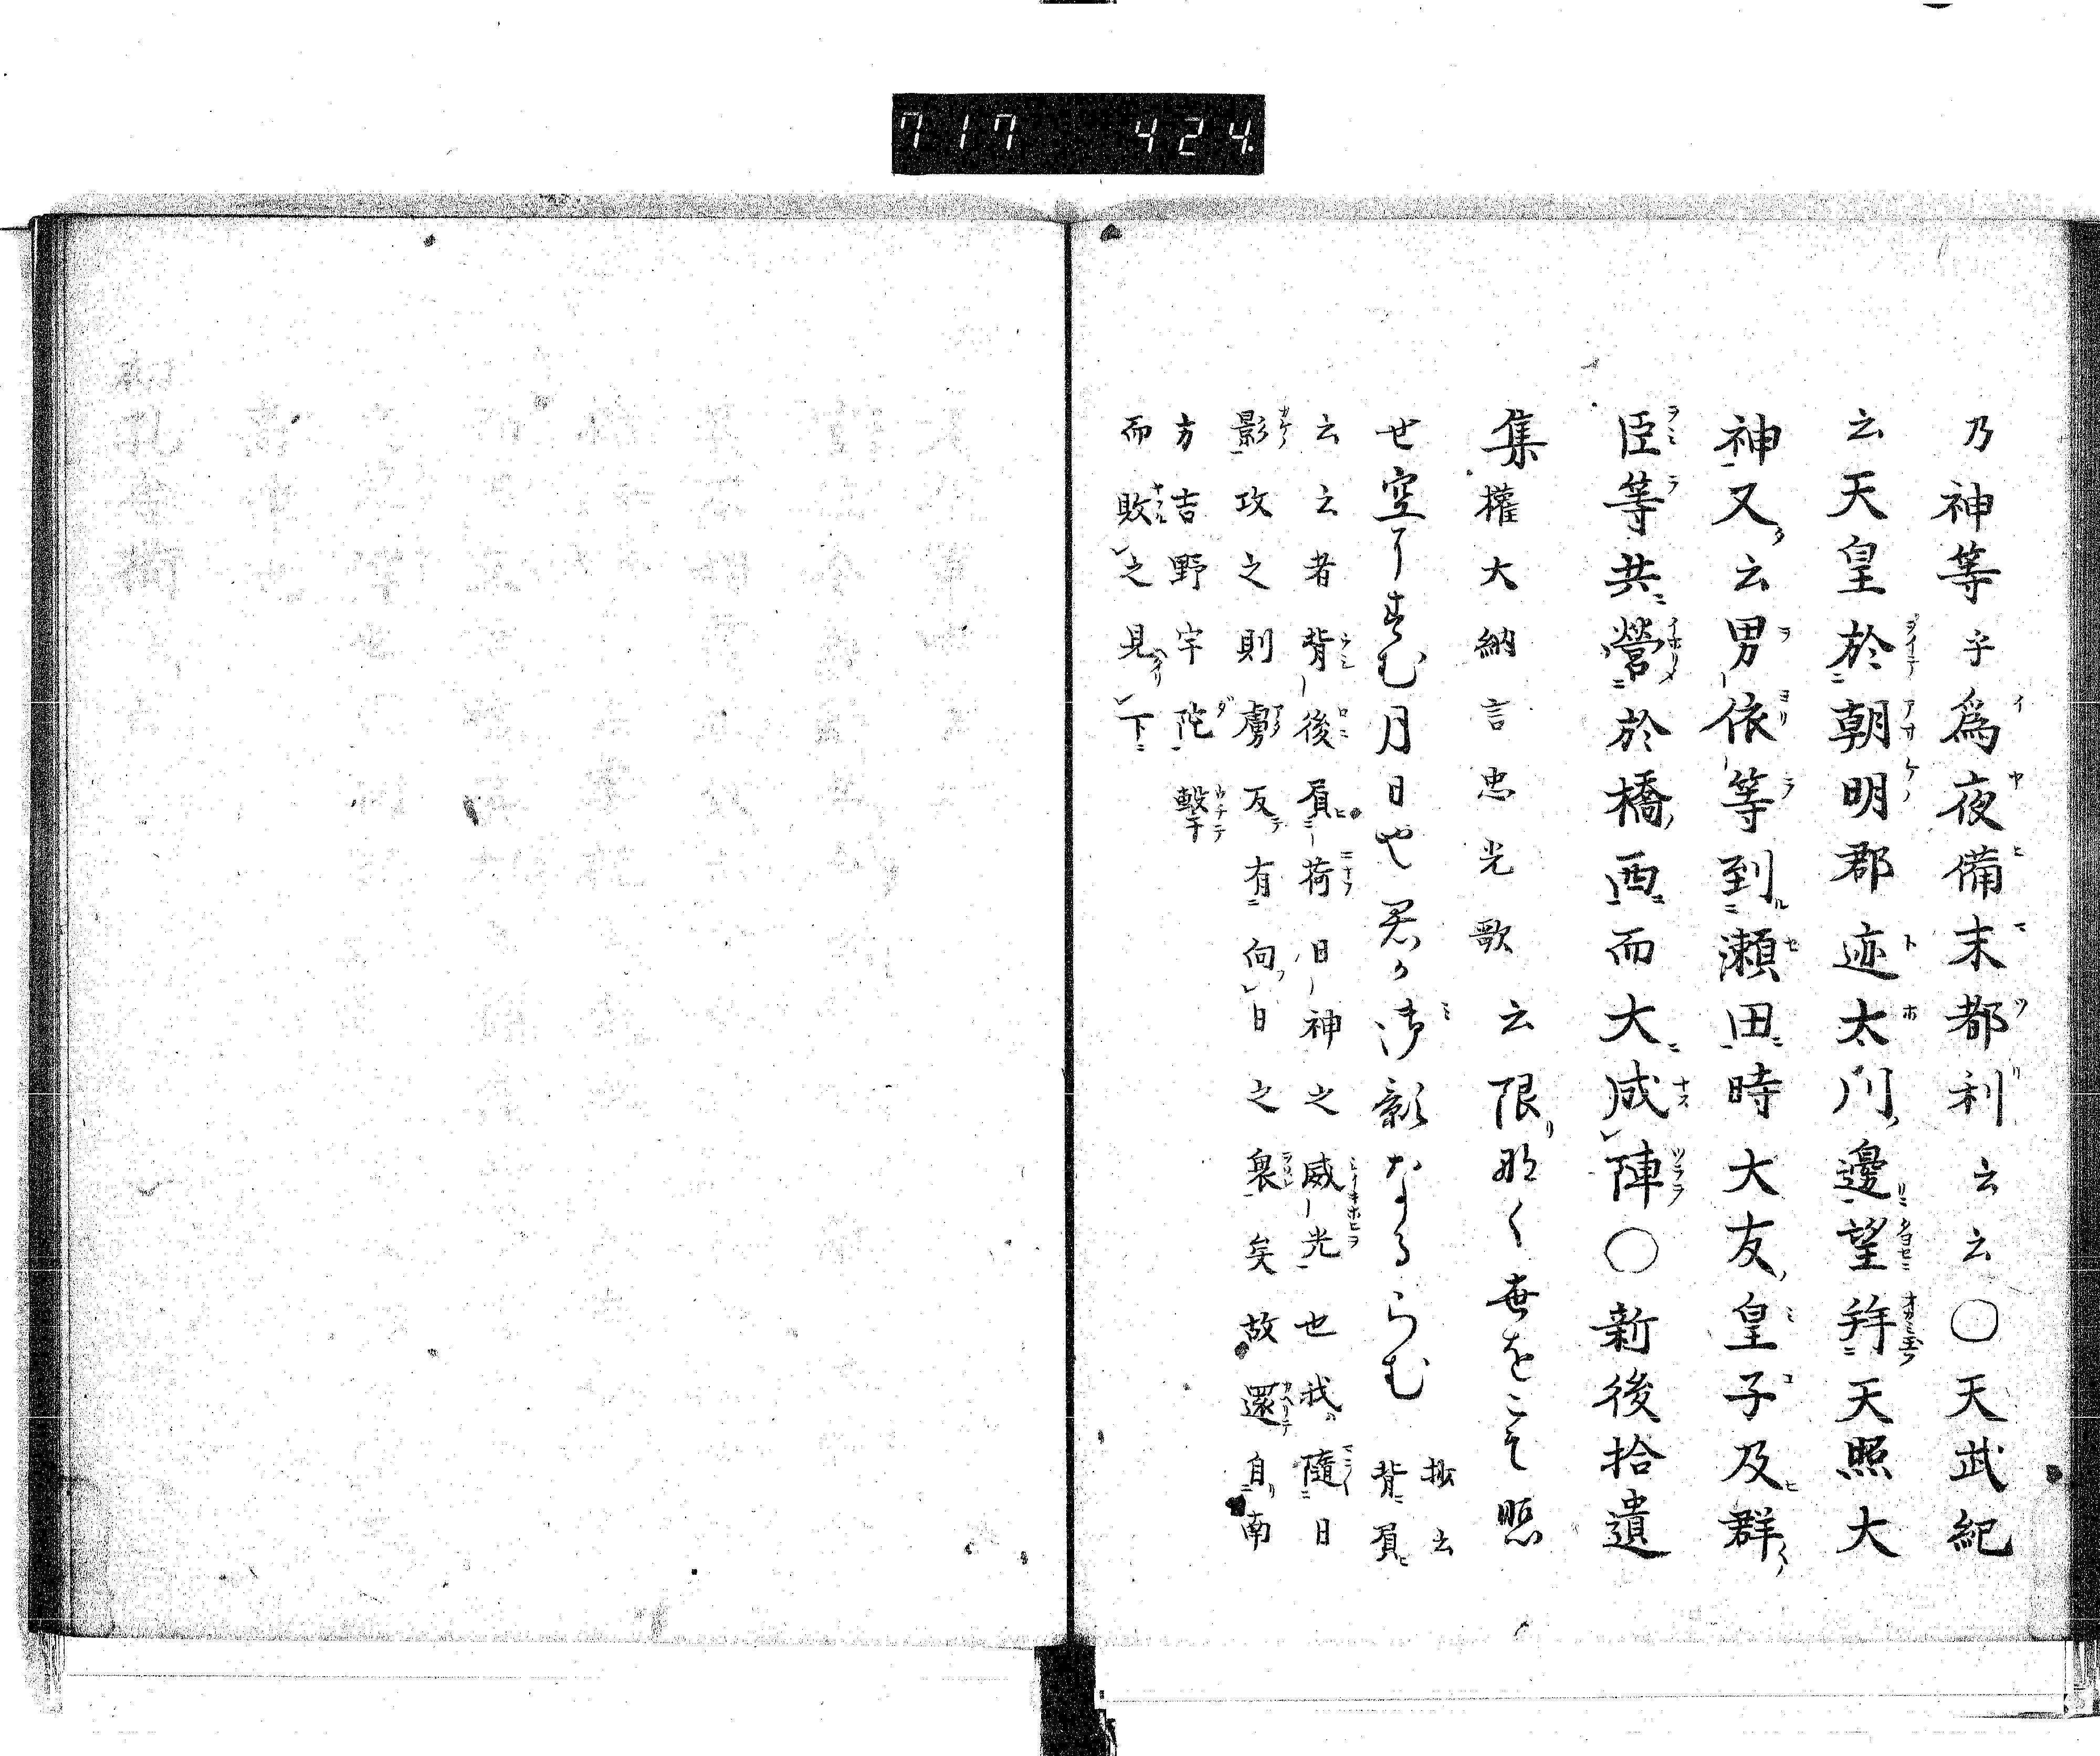 717 424
乃神等乎為夜備末都利云云〇天武紀
云天皇於朝明郡迹太川邊望拜天照大
神又云男依等到瀬田時大友皇子及群
臣等共營於橋西而大成陣〇新後拾遺
集權大納言忠光歌云限那く世をこそ照
せ空にすむ月日や君か御影なるらむ 拠云背負
云云者背後負荷日神之威光也我隨日
影攻之則虜反有向日之襲矣故還自南
方吉野宇陀擊
而敗之見下